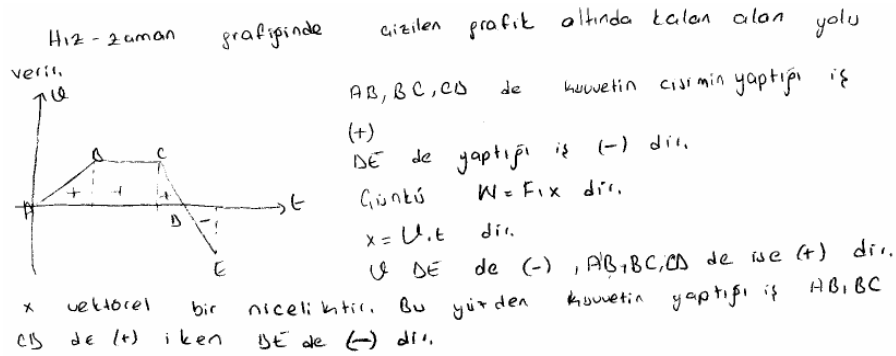 Hız-zaman grafiğinde çizilen grafik altında kalan alan yolu
verir.
AB, BC, CD de kuvvetin cisimin yaptığı iş
(+)
DE de yaptığı iş (-) dir.
Çünkü W = F.x dir.
x = V.t dir.
V DE de (-), AB, BC, CD de ise (+) dir.
x vektörel bir niceliktir. Bu yüzden kuvvetin yaptığı iş AB, BC
CD de (+) iken DE de (-) dir.
V
B C
A + + + D - t
E